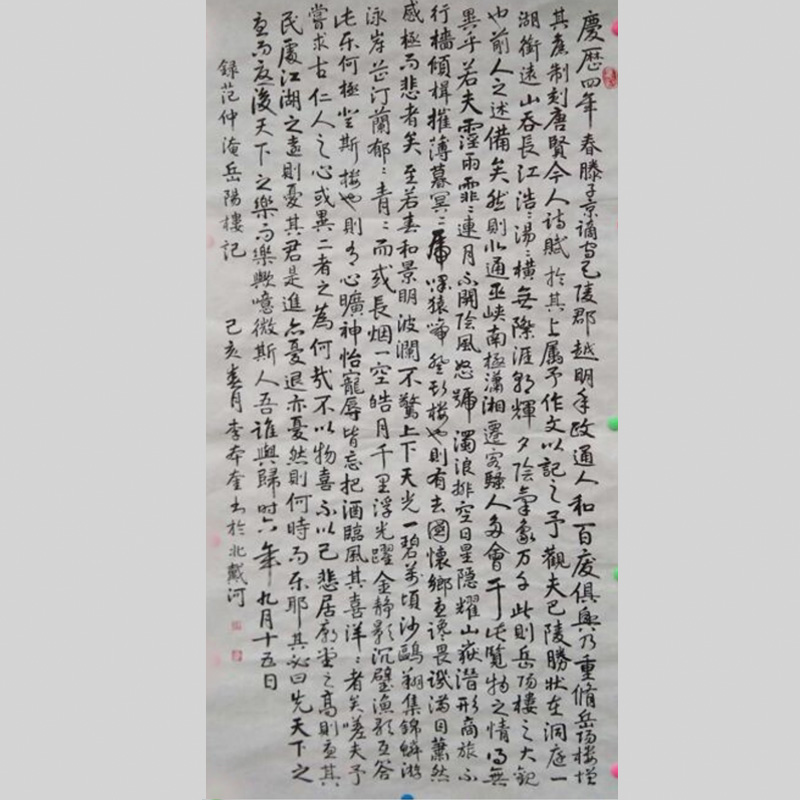 慶歷四年春滕子京謫守巴陵郡越明年政通人和百廢俱興乃重脩岳陽樓增
其舊制刻唐賢今人詩賦於其上屬予作文以記之予觀夫巴陵勝狀在洞庭一
湖銜遠山吞長江浩〻湯〻橫無際涯朝輝夕陰氣象万千此則岳陽樓之大觀
也前人之述備矣然則北通巫峽南極瀟湘遷客騷人多會于此覽物之情得無
異乎若夫霪雨霏〻連月不開陰風怒號濁浪排空日星隱耀山嶽潛形商旅不
行檣傾楫摧薄暮冥〻虎嘯猿啼登斯樓也則有去國懷鄉憂讒畏譏滿目蕭然
感極而悲者矣至若春和景明波瀾不驚上下天光一碧萬頃沙鷗翔集錦鱗游
泳岸芷汀蘭郁〻青〻而或長烟一空皓月千里浮光躍金靜影沉璧漁歌互答
此乐何極登斯樓也則有心曠神怡寵辱皆忘把酒臨風其喜洋〻者矣嗟夫予
嘗求古仁人之心或異二者之為何哉不以物喜不以己悲居廟堂之高則憂其
民處江湖之遠則憂其君是進亦憂退亦憂然則何時而乐耶其必曰先天下之
憂而憂後天下之樂而樂歟噫微斯人吾誰與歸时六年九月十五日
錄范仲淹岳陽樓記
己亥春月李奔奎书於北戴河